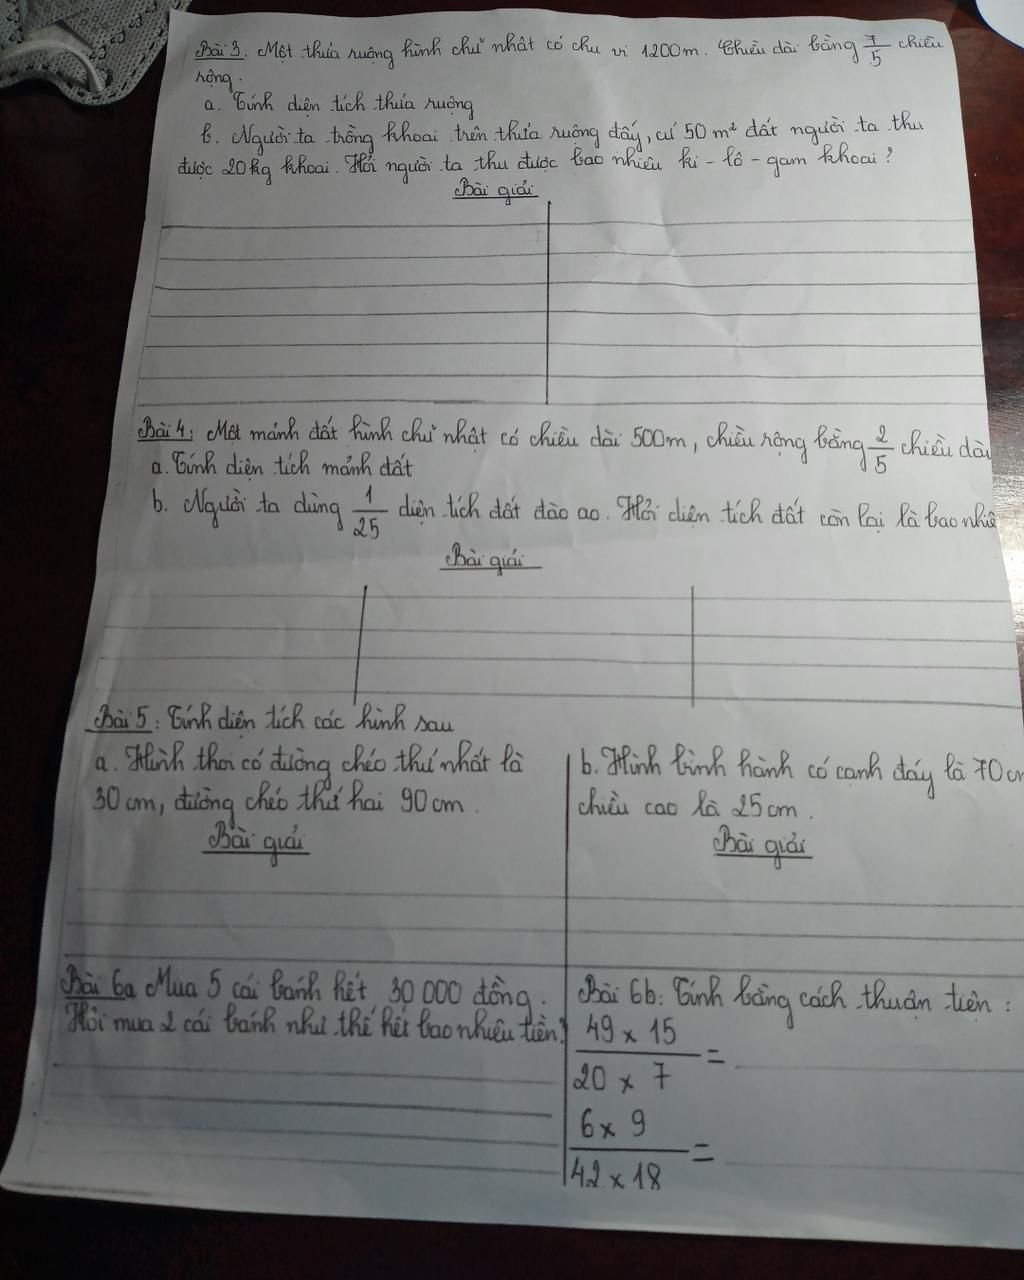 Bài 3: Một thửa ruộng hình chữ nhật có chu vi 1200m. Chiều dài bằng 7/5 chiều
rộng.
a. Tính diện tích thửa ruộng
b. Người ta trồng khoai trên thửa ruộng đấy, cứ 50 m² đất người ta thu
được 20kg khoai. Hỏi người ta thu được bao nhiêu ki - lô - gam khoai?
Bài giải
Bài 4: Một mảnh đất hình chữ nhật có chiều dài 500m, chiều rộng bằng 2/5 chiều dài
a. Tính diện tích mảnh đất
b. Người ta dùng 1/25 diện tích đất đào ao. Hỏi diện tích đất còn lại là bao nhiê
Bài giải
Bài 5: Tính diện tích các hình sau
a. Hình thoi có đường chéo thứ nhất là
30 cm, đường chéo thứ hai 90 cm.
Bài giải
b. Hình bình hành có cạnh đáy là 70 cm
chiều cao là 25 cm.
Bài giải
Bài 6a Mua 5 cái bánh hết 30 000 đồng.
Hỏi mua 2 cái bánh như thế hết bao nhiêu tiền?
Bài 6b: Tính bằng cách thuận tiện:
49 x 15
20 x 7
=
6 x 9
42 x 18
=